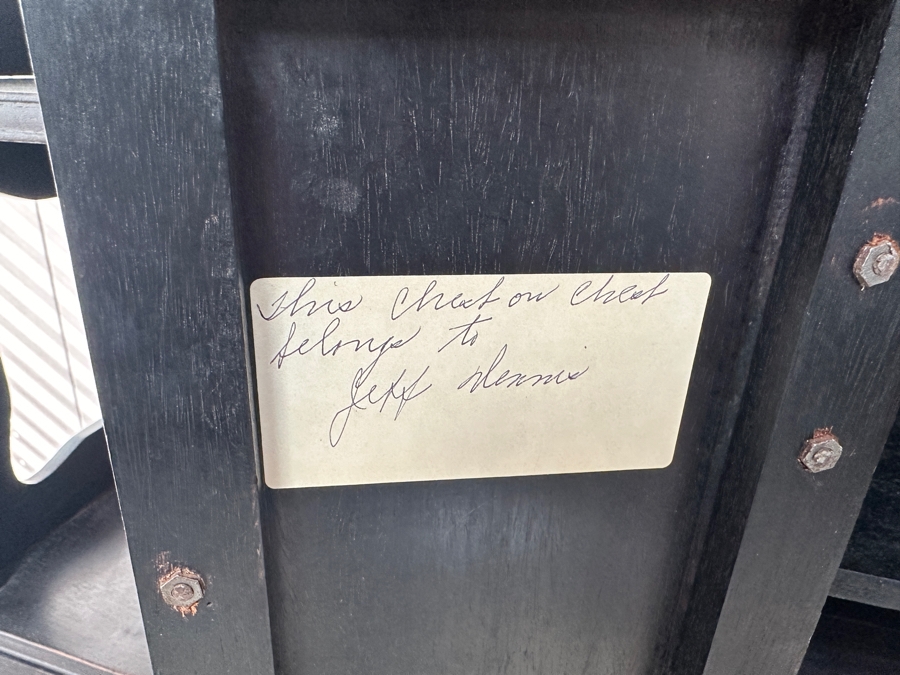 This Chest on Chest
belongs to
Jeff Dennis